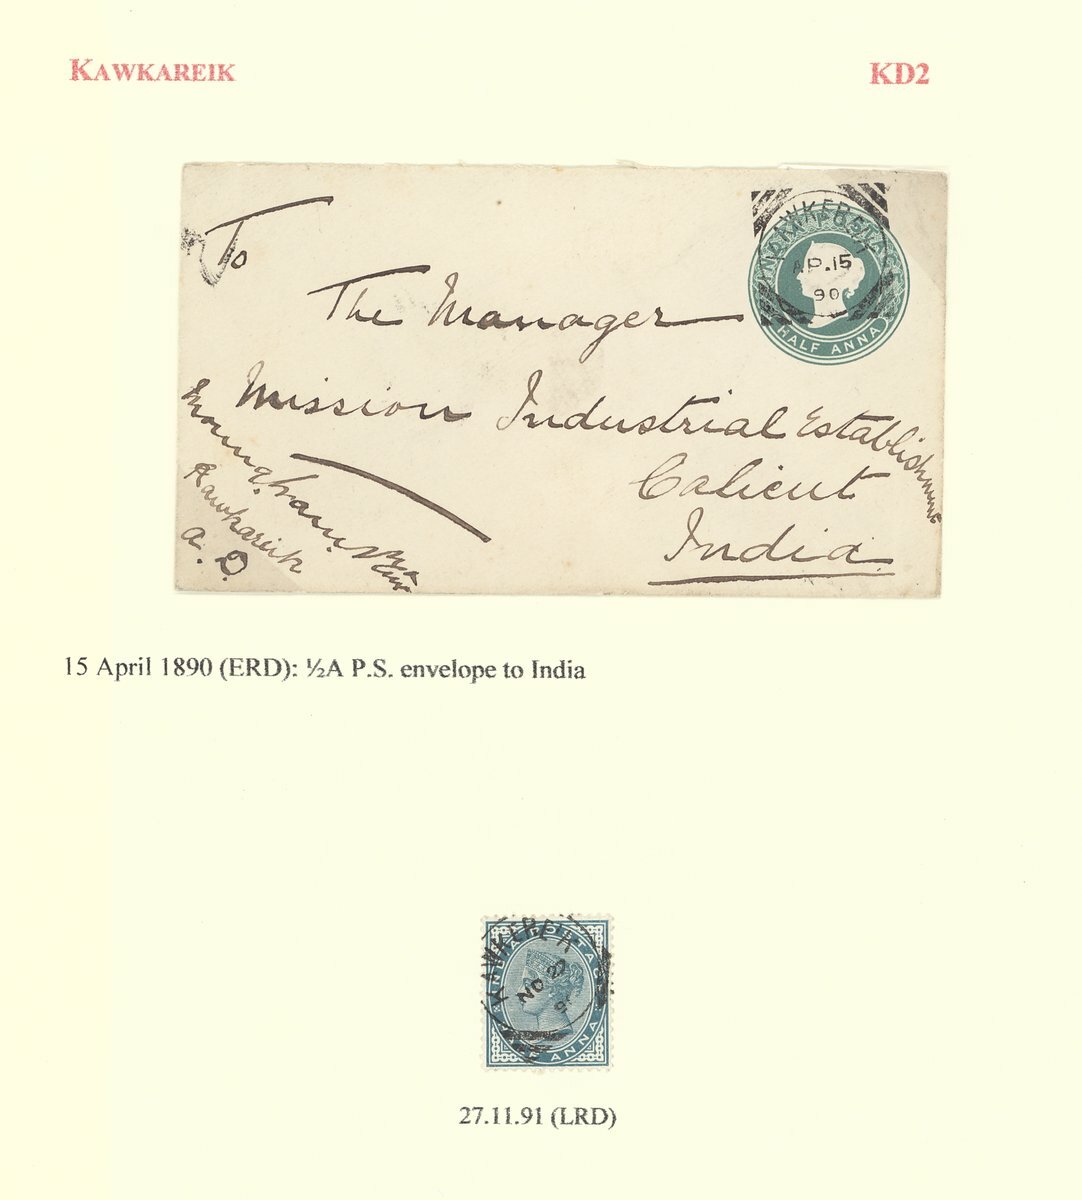 KAWKAREIK
KD2
To
The Manager
Mission Industrial Establishment
Calicut
India
Kawkareik
A. O.
AP.15
90
HALF ANNA
15 April 1890 (ERD): ½A P.S. envelope to India
KAWKEREIK
NO
ANNA
27.11.91 (LRD)